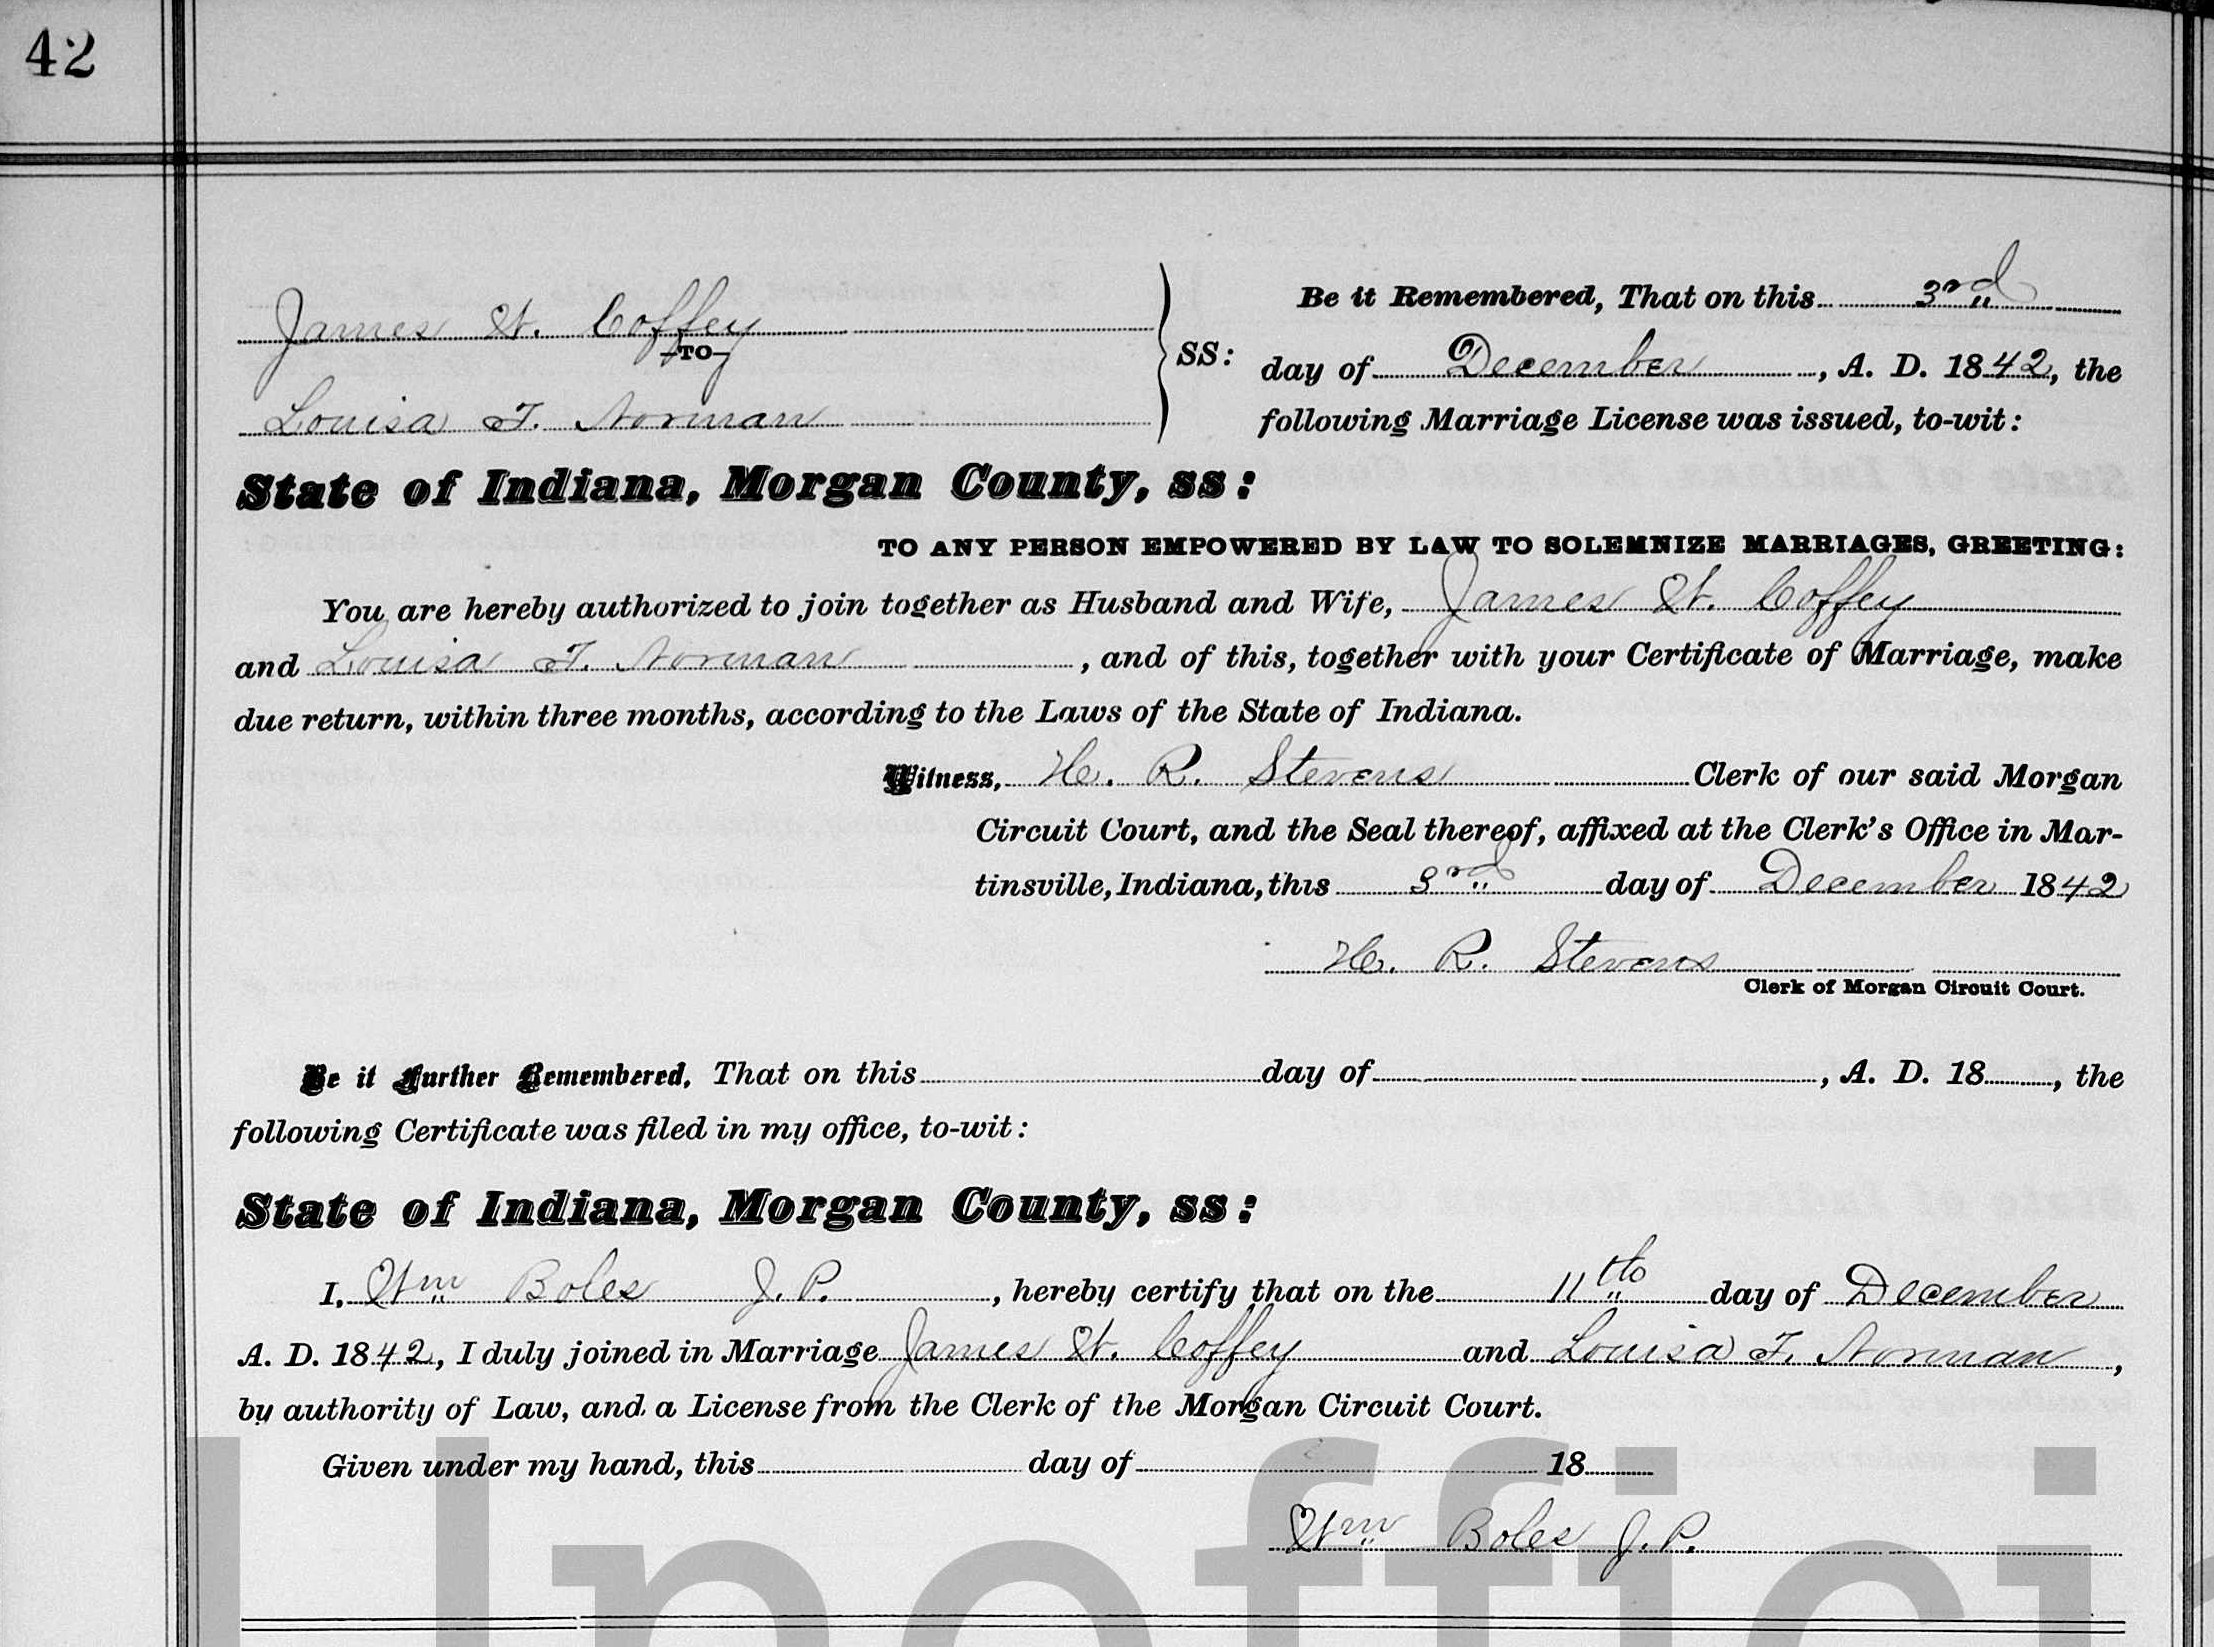 42
James W. Coffey
—TO—
Louisa F. Norman
SS:
Be it Remembered, That on this 3rd
day of December, A. D. 1842, the
following Marriage License was issued, to-wit:
State of Indiana, Morgan County, ss:
TO ANY PERSON EMPOWERED BY LAW TO SOLEMNIZE MARRIAGES, GREETING:
You are hereby authorized to join together as Husband and Wife, James W. Coffey
and Louisa F. Norman, and of this, together with your Certificate of Marriage, make
due return, within three months, according to the Laws of the State of Indiana.
Witness, H. R. Stevens Clerk of our said Morgan
Circuit Court, and the Seal thereof, affixed at the Clerk's Office in Mar-
tinsville, Indiana, this 3rd day of December 1842
H. R. Stevens
Clerk of Morgan Circuit Court.
Be it Further Remembered, That on this day of , A. D. 18 , the
following Certificate was filed in my office, to-wit:
State of Indiana, Morgan County, ss:
I, Wm Boles J. P. , hereby certify that on the 11th day of December
A. D. 1842, I duly joined in Marriage James W. Coffey and Louisa F. Norman,
by authority of Law, and a License from the Clerk of the Morgan Circuit Court.
Given under my hand, this day of 18
Wm Boles J. P.
Unoffici